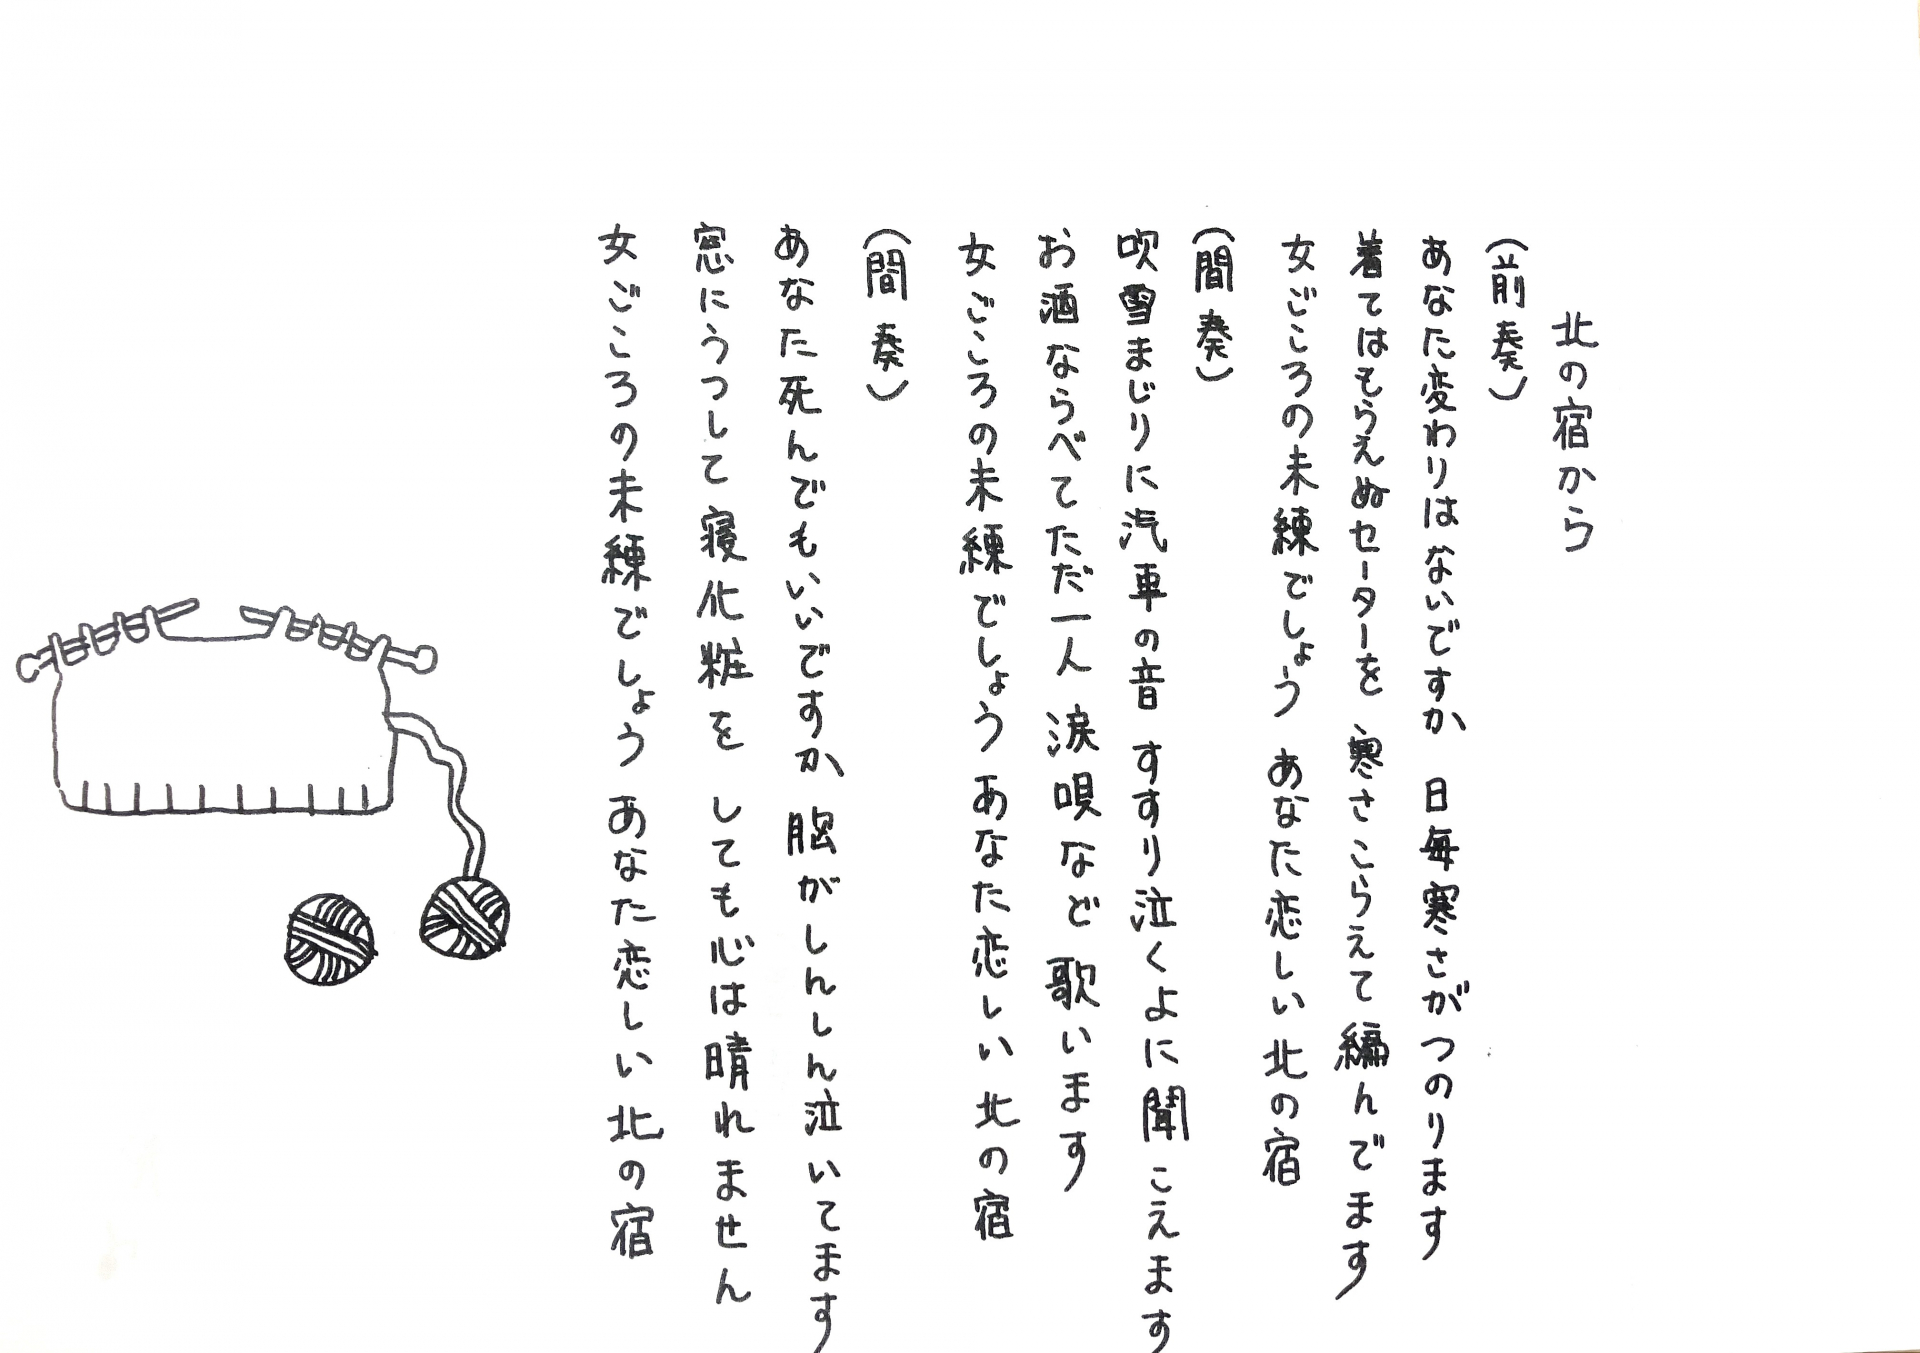 北の宿から
（前奏）
あなた変わりはないですか 日毎寒さがつのります
着てはもらえぬセーターを 寒さこらえて編んでます
女ごころの未練でしょう あなた恋しい北の宿
（間奏）
吹雪まじりに汽車の音 すすり泣くよに聞こえます
お酒ならべてただ一人 涙唄など歌います
女ごころの未練でしょう あなた恋しい北の宿
（間奏）
あなた死んでもいいですか 胸がしんしん泣いてます
窓にうつして寝化粧を しても心は晴れません
女ごころの未練でしょう あなた恋しい北の宿